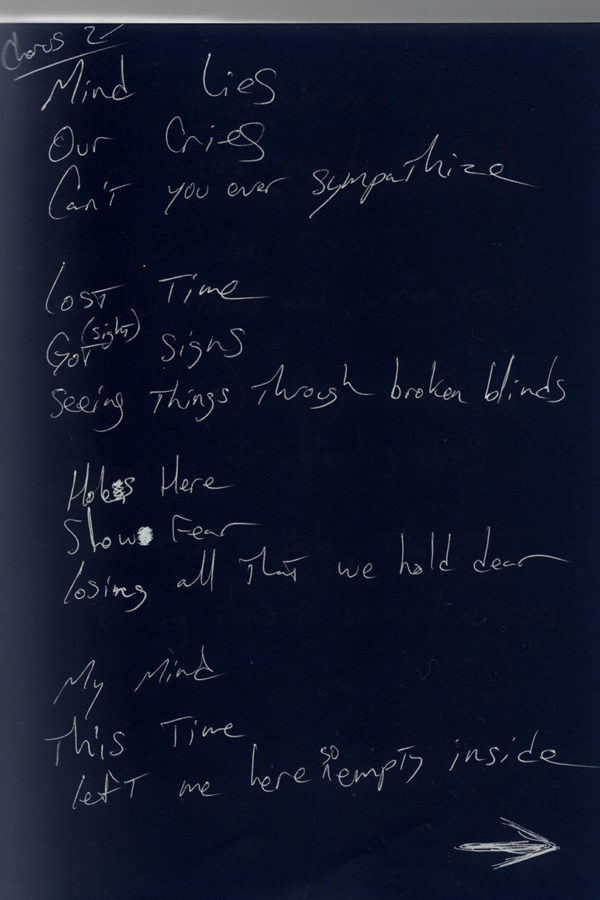 Chorus 2
Mind Lies
Our Cries
Can't you ever sympathize
Lost Time
Got (sight) signs
seeing things through broken blinds
Holes Here
Show Fear
losing all that we hold dear
My Mind
This Time
left me here so empty inside